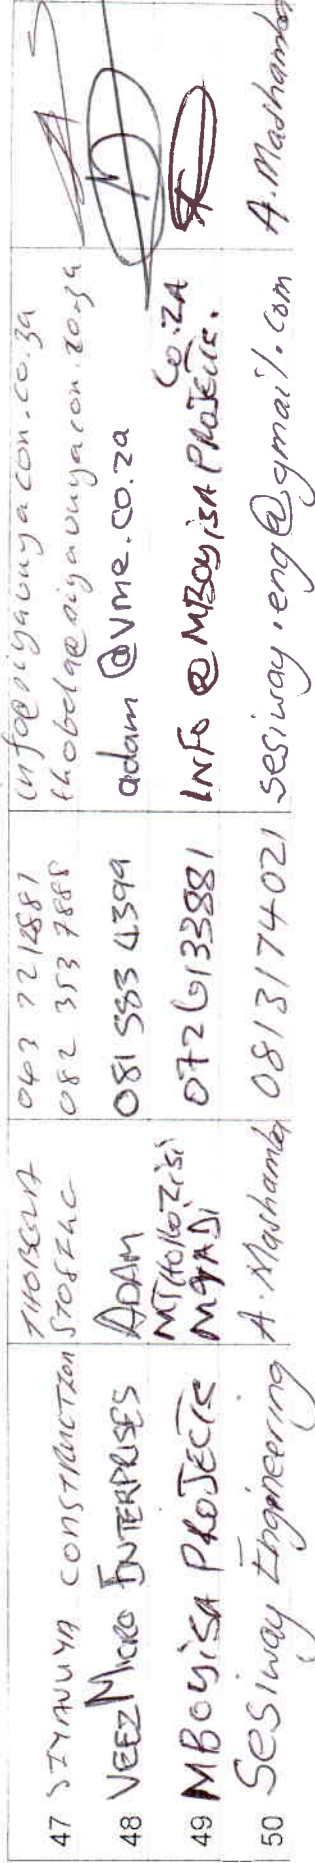 47 SIYAVUYA CONSTRUCTION THOBELA 043 721 2881 info@siyavuyacon.co.za
082 353 7888 thobela@siyavuyacon.co.za
48 VEEZ MICRO ENTERPRISES ADAM 081 583 4399 adam@vme.co.za
49 MBOYISA PROJECTS MTHOKOZISI MGADI 0726133881 INFO@MBOYISA PROJECTS.CO.ZA
50 Sesiway Engineering A. Mashamba 0813174021 sesiway.eng@gmail.com A. Mashamba